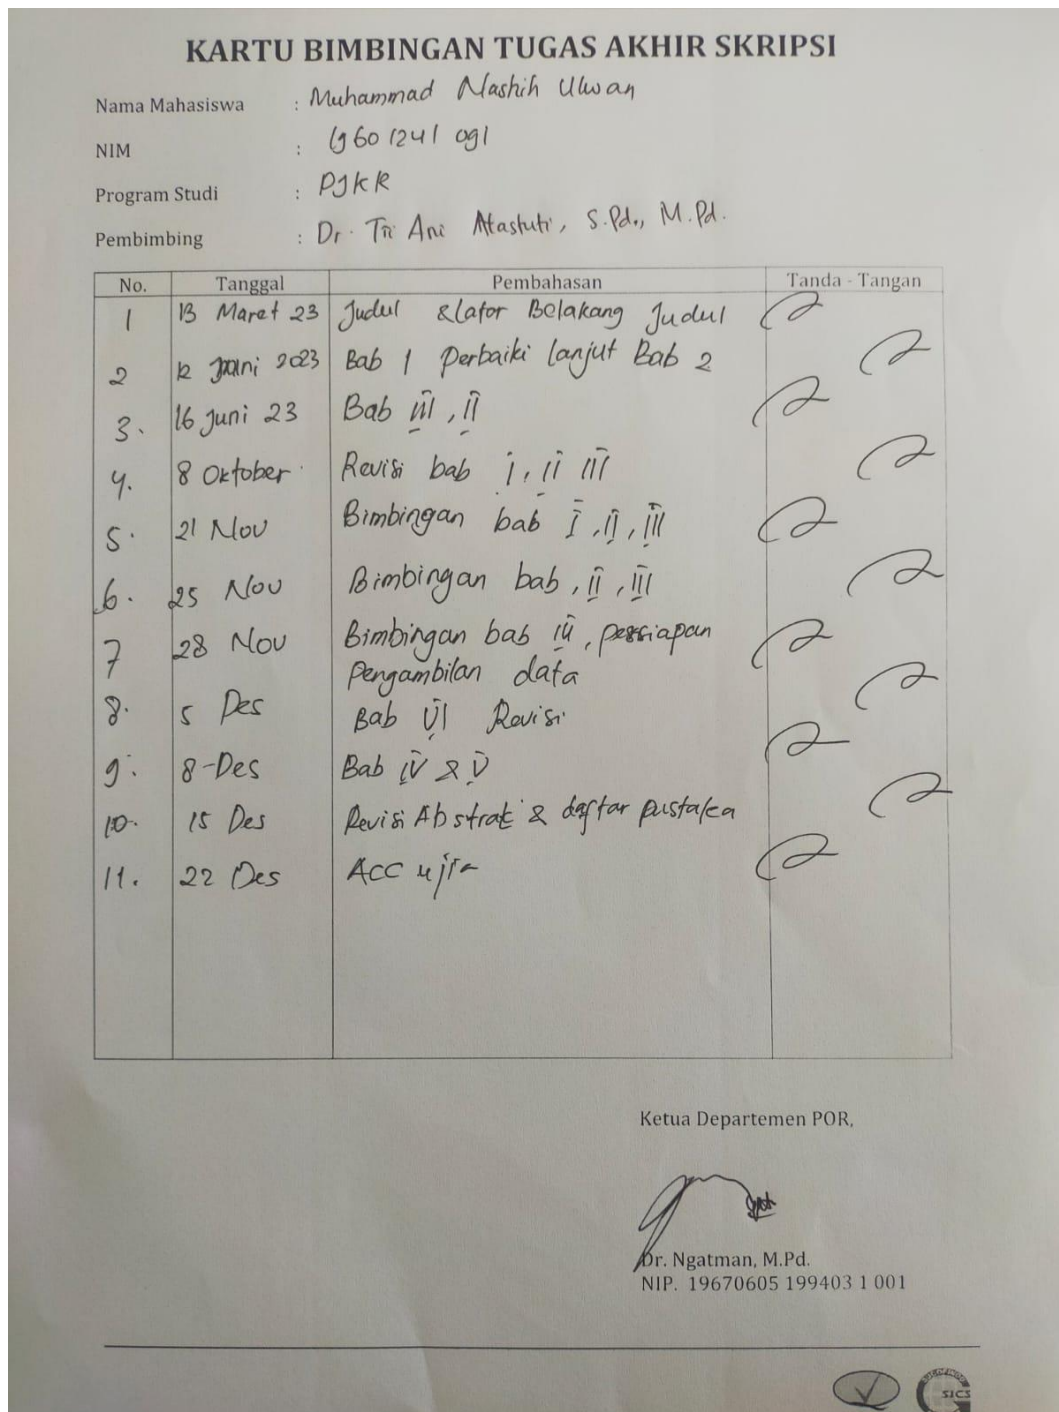 KARTU BIMBINGAN TUGAS AKHIR SKRIPSI
Nama Mahasiswa : Muhammad Nashih Ulwan
NIM : 19601241091
Program Studi : PJKR
Pembimbing : Dr. Tri Ani Hastuti, S.Pd., M.Pd.
No. Tanggal Pembahasan Tanda - Tangan
1 13 Maret 23 Judul & Lator Belakang Judul
2 12 Juni 2023 Bab 1 Perbaiki lanjut Bab 2
3. 16 Juni 23 Bab III, II
4. 8 Oktober Revisi bab I, II III
5. 21 Nov Bimbingan bab I, II, III
6. 25 Nov Bimbingan bab, II, III
7 28 Nov Bimbingan bab III, persiapan
Pengambilan data
8. 5 Des Bab Revisi
9. 8-Des Bab IV & V
10. 15 Des Revisi Abstrak & daftar pustaka
11. 22 Des ACC ujian
Ketua Departemen POR,
Dr. Ngatman, M.Pd.
NIP. 19670605 199403 1 001
SICS